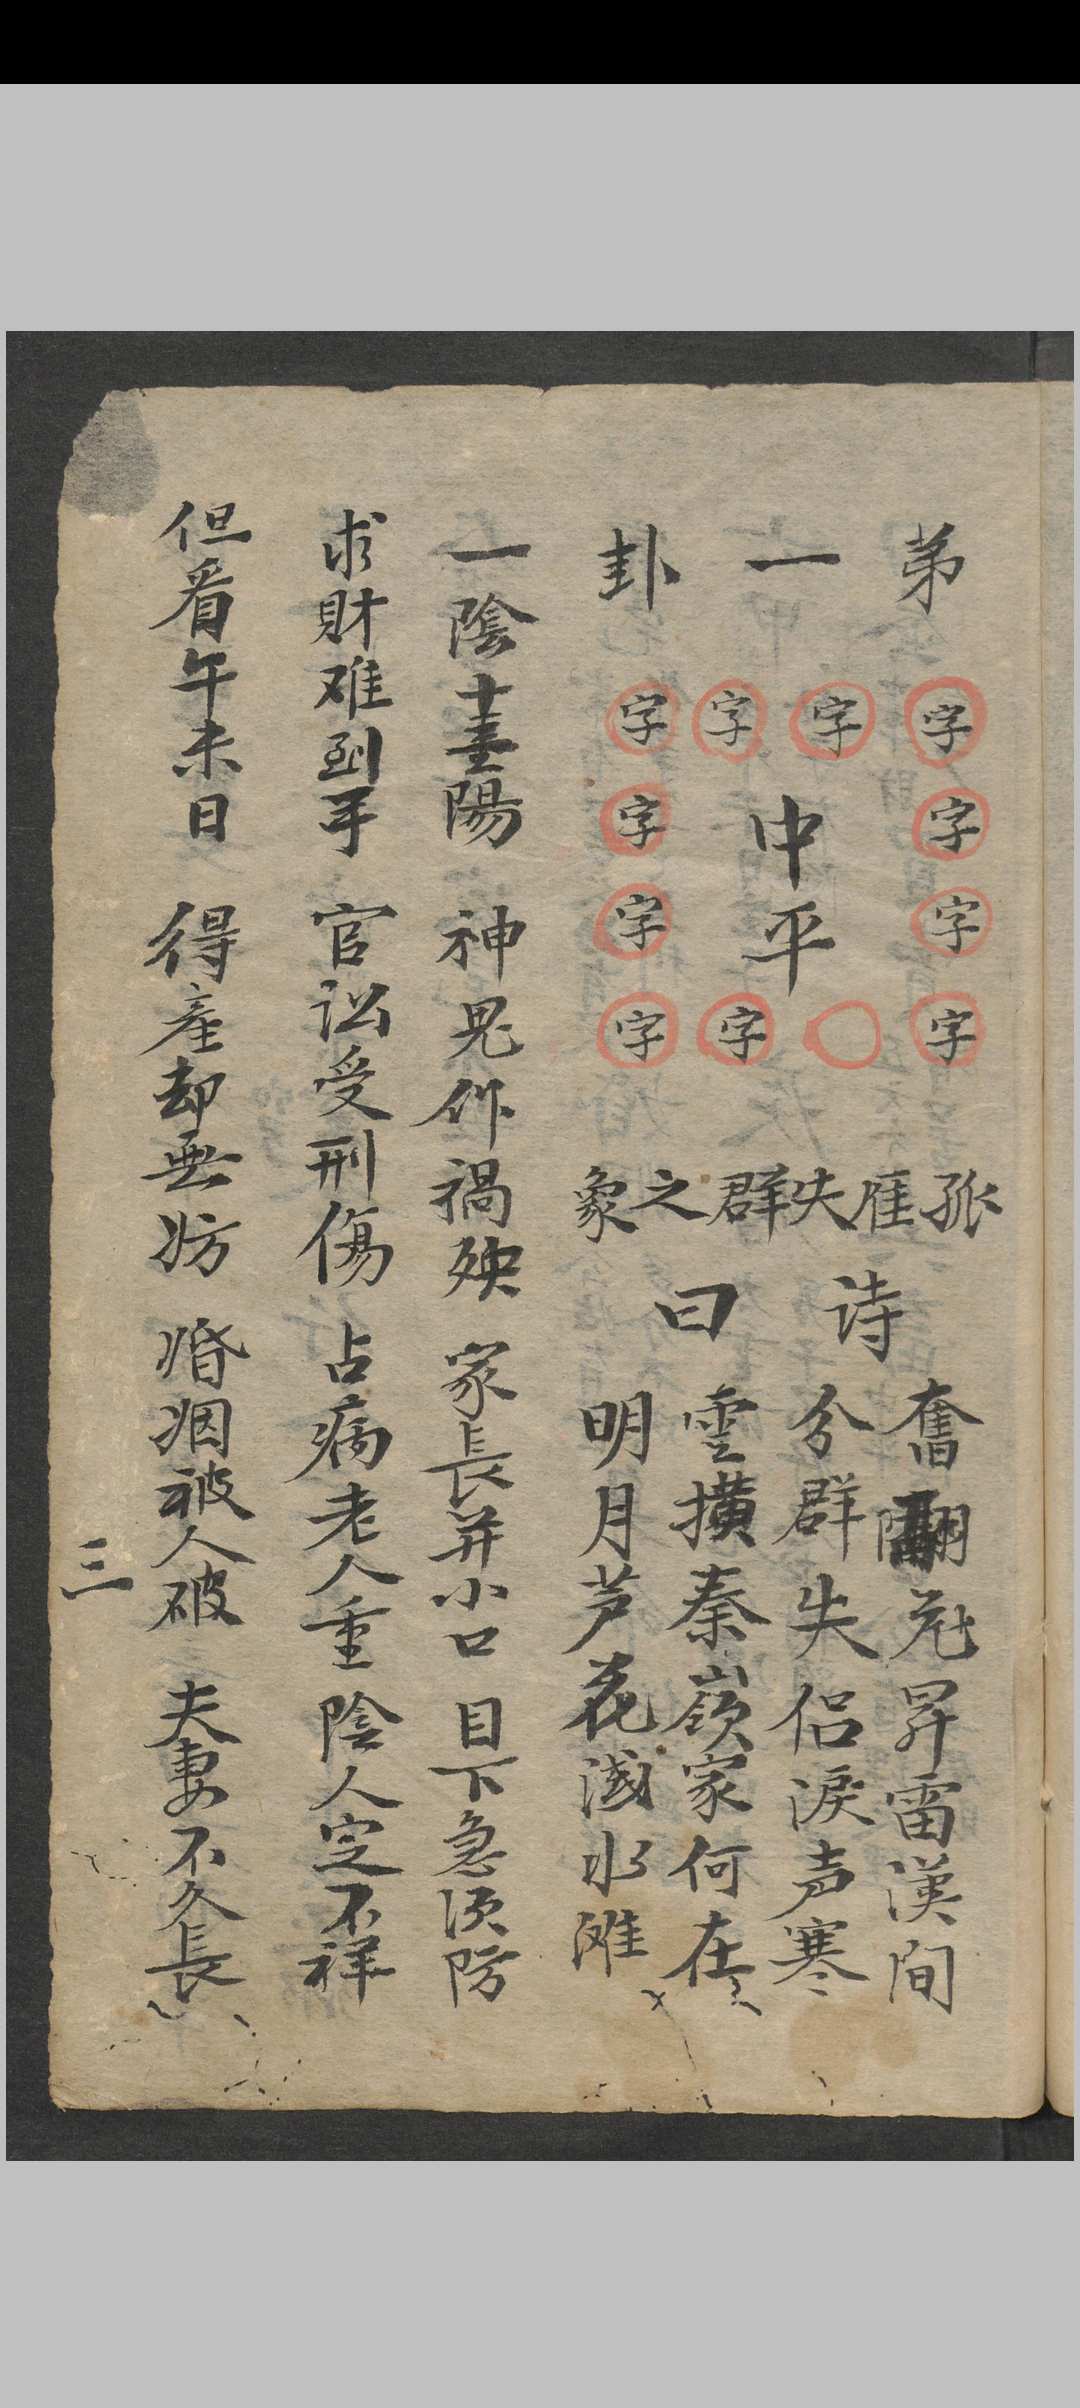 苐一卦
字字字字
字字
中平
字字字字字
孤雁失群之象
诗曰
奮翮𠒋昇雷漢间
分群失侣淚声寒
雲擴秦嶺家何在
明月芦花浅水滩
一陰十壹陽 神鬼作禍殃 家長并小口 目下急須防
求财难到手 官讼受刑傷 占病老人重 陰人定不祥
但看午未日 得產却無妨 婚姻被人破 夫妻不久長
三